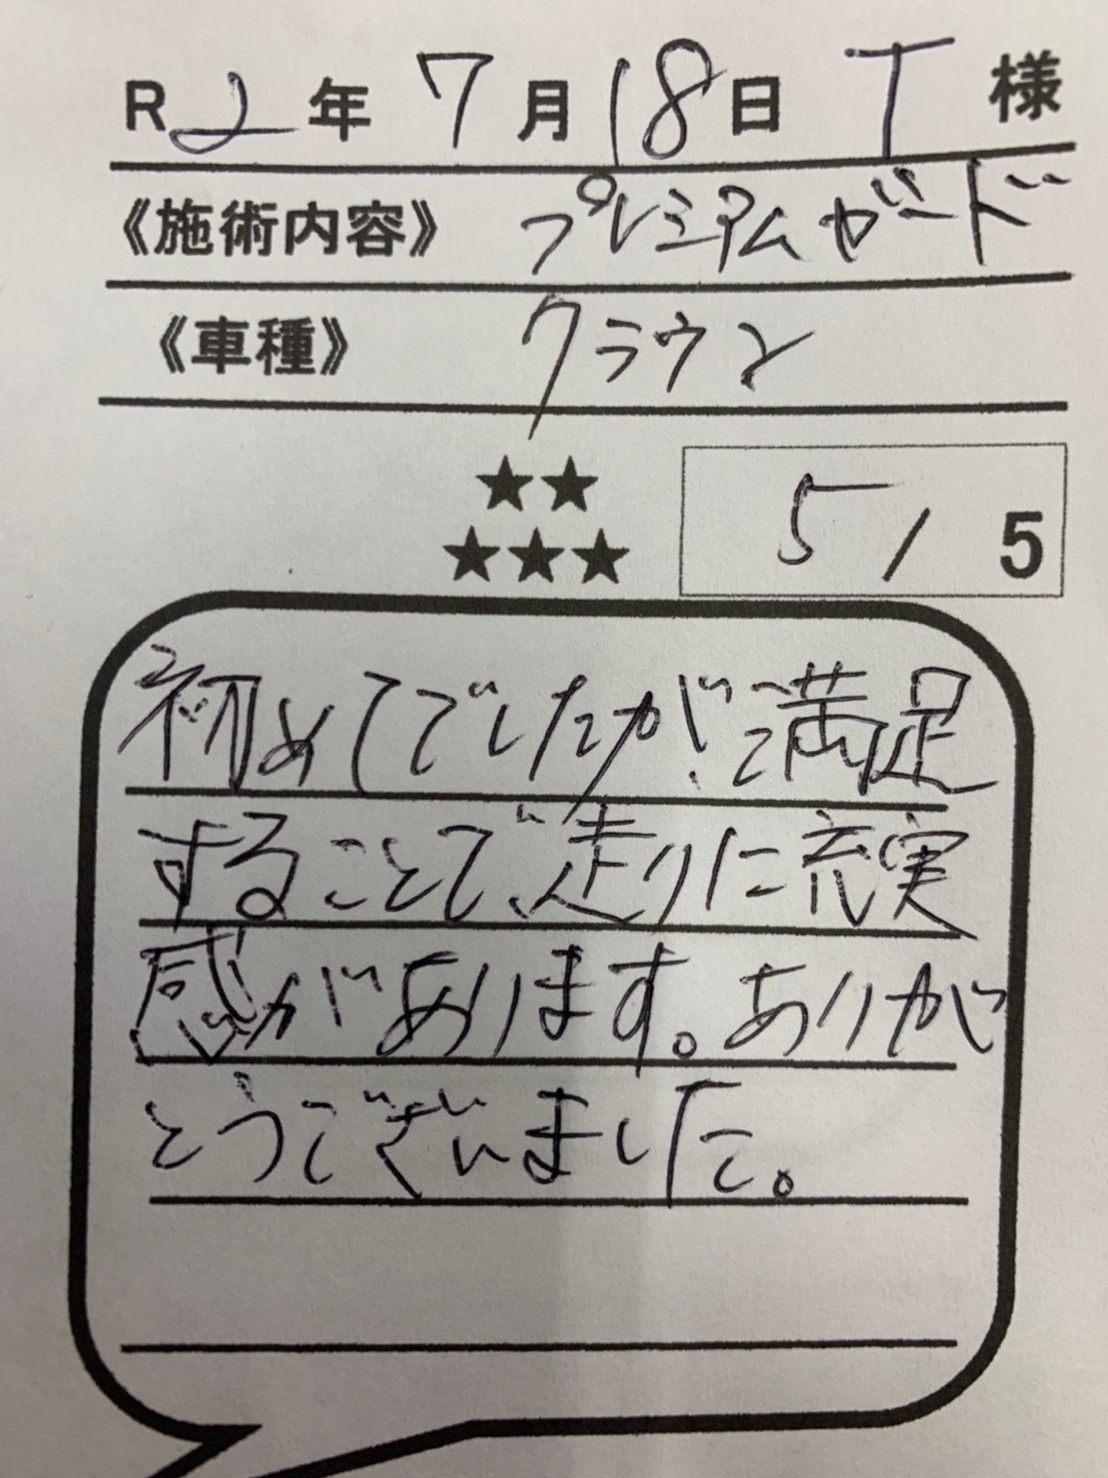 R2年7月18日 T 様
《施術内容》 プレミアムガード
《車種》 クラウン
★★
★★★ 5/5
初めてでしたが、満足
することで、走りに充実
感があります。ありが
とうございました。